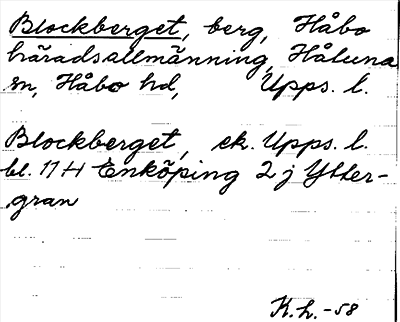 Blockberget, berg, Håbo
häradsallmänning, Håtuna
sn, Håbo hd, Upps. l.
Blockberget, ek. Upps. l.
bl. 11 H Enköping 2 j Ytter-
gran
K.h. -58